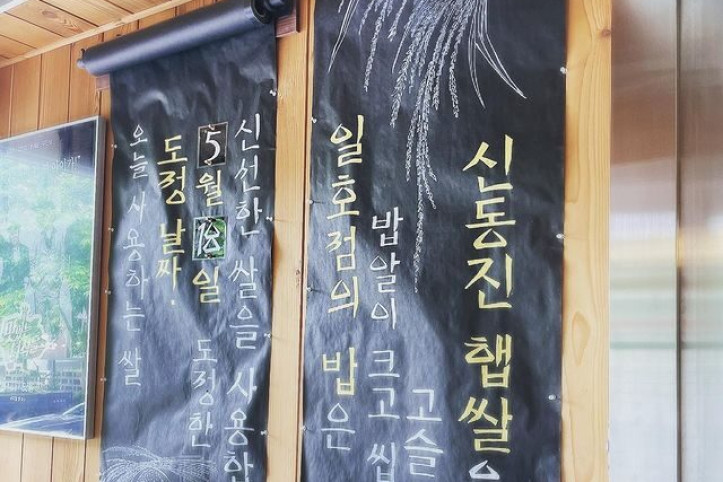 오늘 사용하는 쌀
도정 날짜.
5월 18일 도정한
신선한 쌀을 사용한
일호점의 밥은
밥알이 크고 씹
고슬
신동진 햅쌀